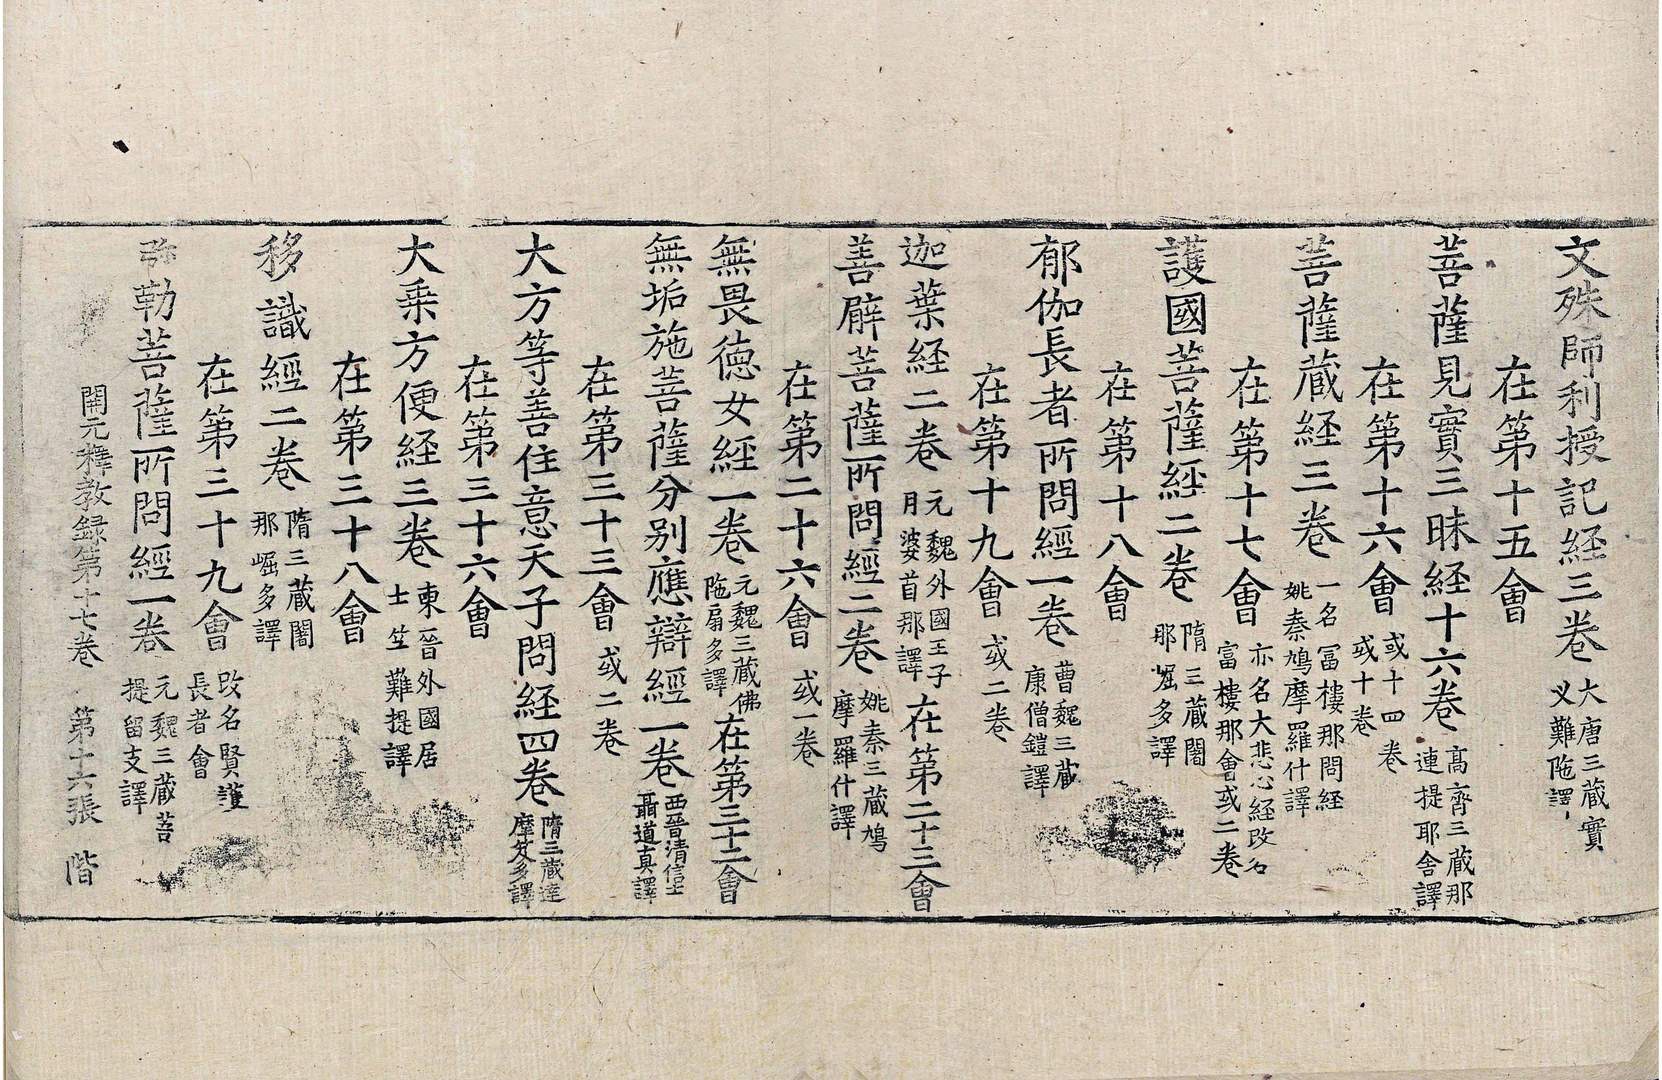 文殊師利授記経三卷大唐三藏實叉難陁譯
在第十五會
菩薩見實三昧経十六卷高齊三藏那連提耶舍譯
在第十六會或十四卷或十卷
菩薩藏経三卷一名冨樓那問経姚秦鳩摩羅什譯
在第十七會亦名大悲心経改名冨樓那會或二卷
護國菩薩経二卷隋三藏闍那崛多譯
在第十八會
郁伽長者所問經一卷曹魏三藏康僧鎧譯
在第十九會或二卷
迦葉経二卷元魏外國王子月婆首那譯在第二十三會
善臂菩薩所問經二卷姚秦三藏鳩摩羅什譯
在第二十六會或一卷
無畏德女經一卷元魏三藏佛陁扇多譯在第三十二會
無垢施菩薩分別應辯經一卷西晉清信士聶道真譯
在第三十三會或二卷
大方等善住意天子問経四卷隋三藏達摩笈多譯
在第三十六會
大乗方便経三卷東晉外國居士竺難提譯
在第三十八會
移識經二卷隋三藏闍那崛多譯
在第三十九會改名賢護長者會
弥勒菩薩所問經一卷元魏三藏菩提留支譯
開元釋教録第十七卷 第十六張 階